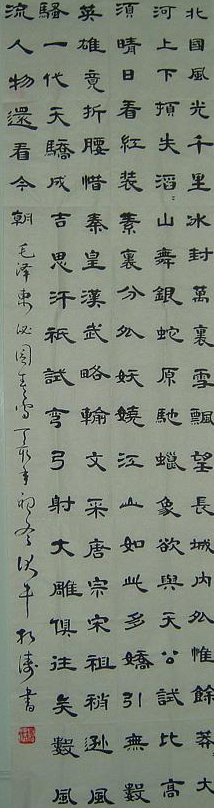 北國風光千里冰封萬裏雪飄望長城內外惟餘莽大
河上下頓失滔〻山舞銀蛇原馳蠟象欲與天公試比高
須晴日看紅裝素裏分外妖嬈江山如此多嬌引無數
英雄竟折腰惜秦皇漢武略輸文采唐宗宋祖稍遜風
騷一代天驕成吉思汗祇試彎弓射大雕俱往矣數風
流人物還看今朝 毛澤東沁園春雪 丁亥年初冬 書